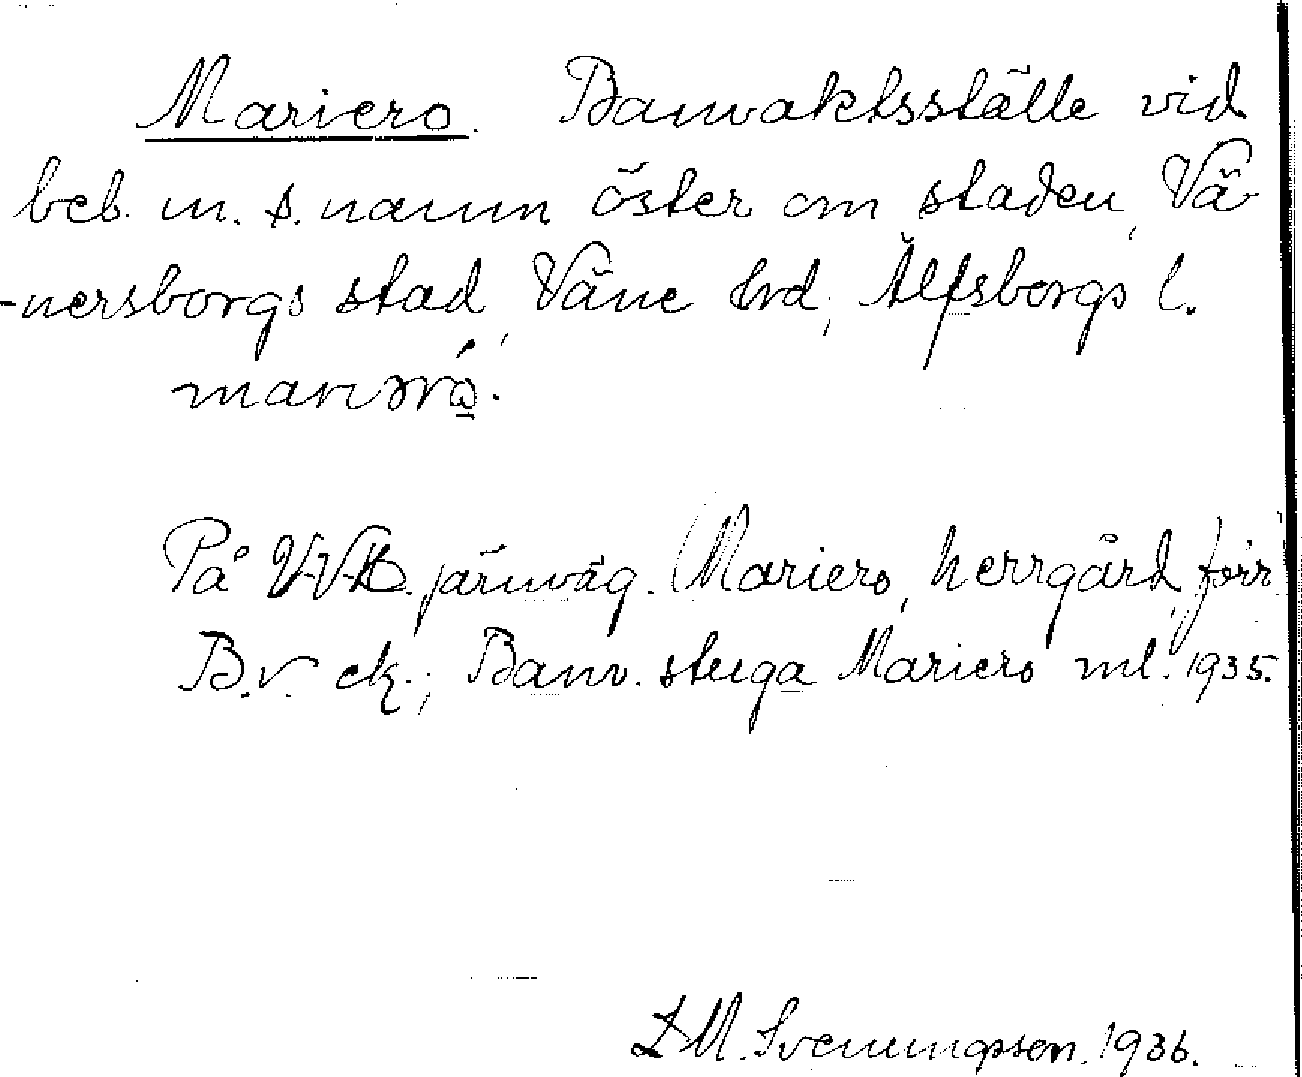 Mariero. Banvaktsställe vid
beb. m. s. namn öster om staden, Vä-
-nersborgs stad, Väne hrd, Älfsborgs l.
På järnväg. (Mariero, herrgård, förr
B.v. ek.; Banv. stuga Mariero ml. 1935.
L M. Svenungsson. 1936.